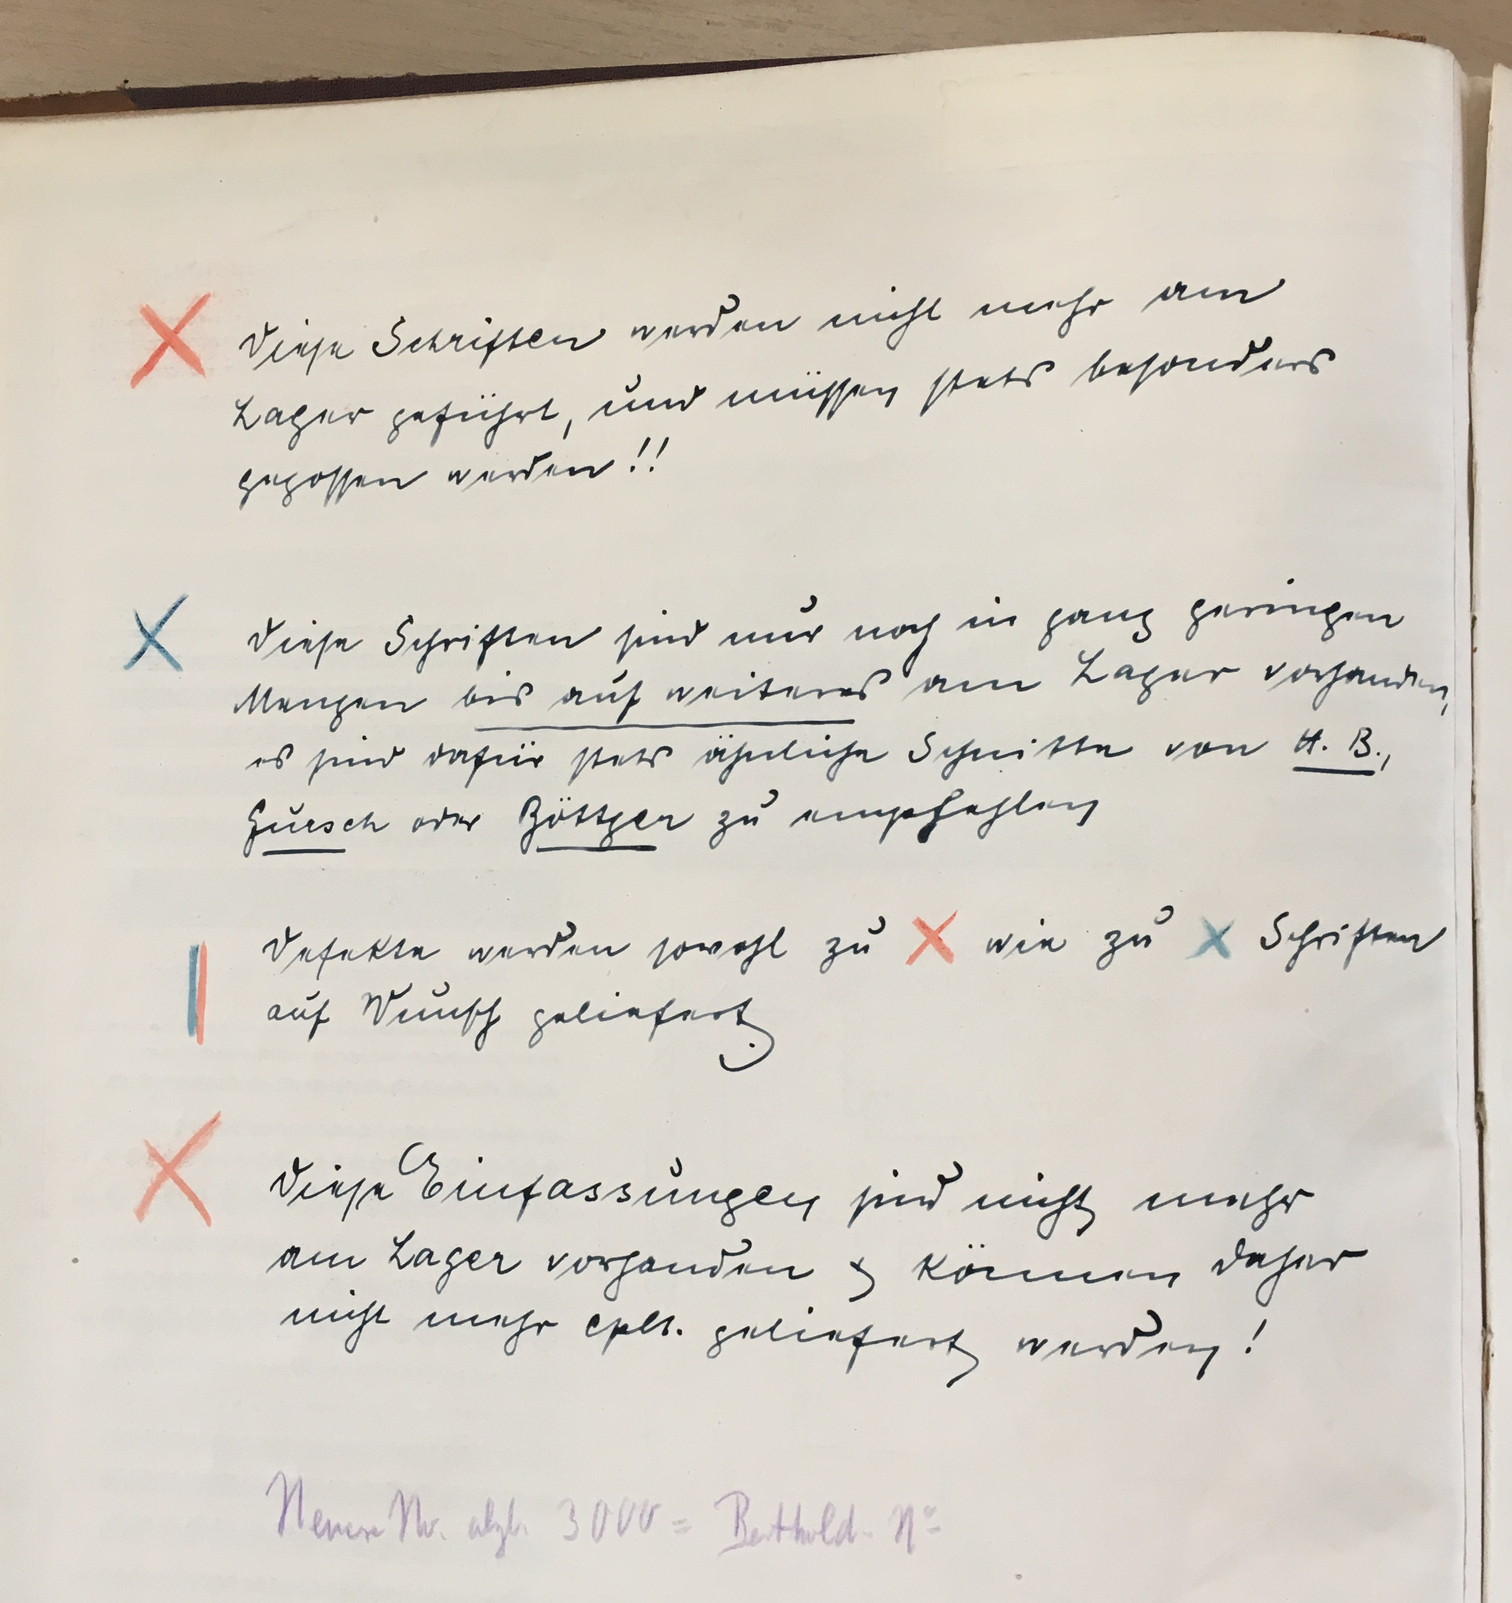 Diese Schriften werden nicht mehr am
Lager geführt, und müssen stets besonders
gegossen werden!!
Diese Schriften sind nur noch in ganz geringen
Mengen bis auf weiteres am Lager vorhanden,
es sind dafür stets ähnliche Schnitte von H. B.,
Gursch oder Böttger zu empfehlen
Defekte werden sowohl zu X wie zu X Schriften
auf Wunsch geliefert.
Diese Einfassungen sind nicht mehr
am Lager vorhanden & können daher
nicht mehr cplt. geliefert werden!
Neuere Nr. abzl. 3000 = Berthold-No